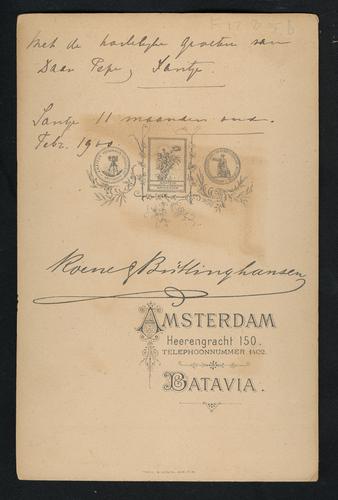 Met de hartelijke groeten van
Daan Pape, Santje.
Santje 11 maanden oud.
Febr. 1900
Roene & Büttinghausen
AMSTERDAM
Heerengracht 150.
TELEPHOONNUMMER 1402.
BATAVIA.